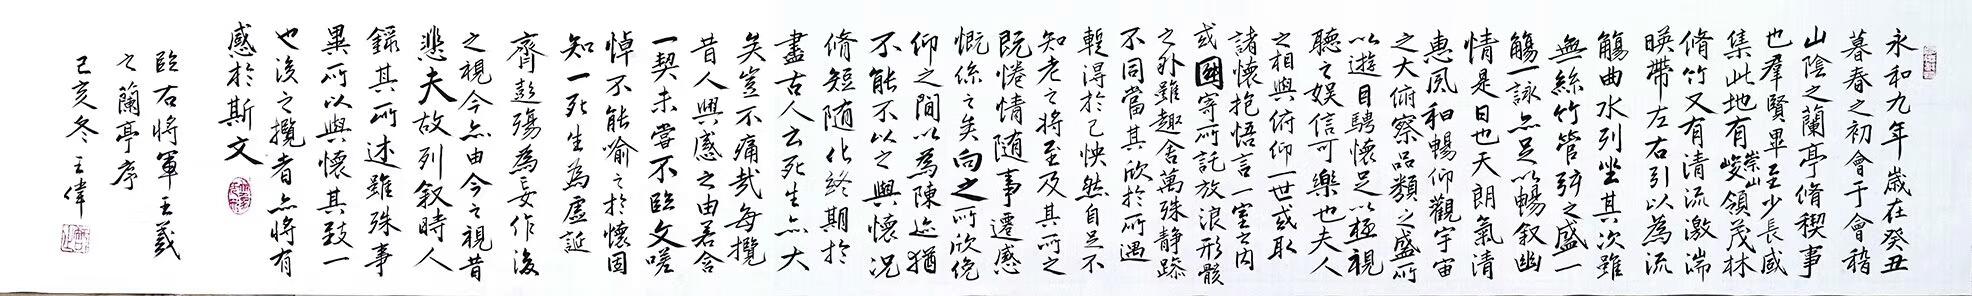 永和九年歲在癸丑
暮春之初會于會稽
山陰之蘭亭脩稧事
也羣賢畢至少長咸
集此地有崇山峻領茂林
脩竹又有清流激湍
暎帶左右引以為流
觴曲水列坐其次雖
無絲竹管弦之盛一
觴一詠亦足以暢叙幽
情是日也天朗氣清
惠風和暢仰觀宇宙
之大俯察品類之盛所
以遊目騁懷足以極視
聽之娛信可樂也夫人
之相與俯仰一世或取
諸懷抱悟言一室之內
或因寄所託放浪形骸
之外雖趣舍萬殊靜躁
不同當其欣於所遇
蹔得於己怏然自足不
知老之將至及其所之
既惓情随事遷感
慨係之矣向之所欣俛
仰之間以為陳迹猶
不能不以之興懷況
脩短随化終期於
盡古人云死生亦大
矣豈不痛哉每攬
昔人興感之由若合
一契未嘗不臨文嗟
悼不能喻之於懷固
知一死生為虛誕
齊彭殤為妄作後
之視今亦由今之視昔
悲夫故列叙時人
錄其所述雖殊事
異所以興懷其致一
也後之攬者亦將有
感於斯文
臨右將軍王羲
之蘭亭序
己亥冬王偉